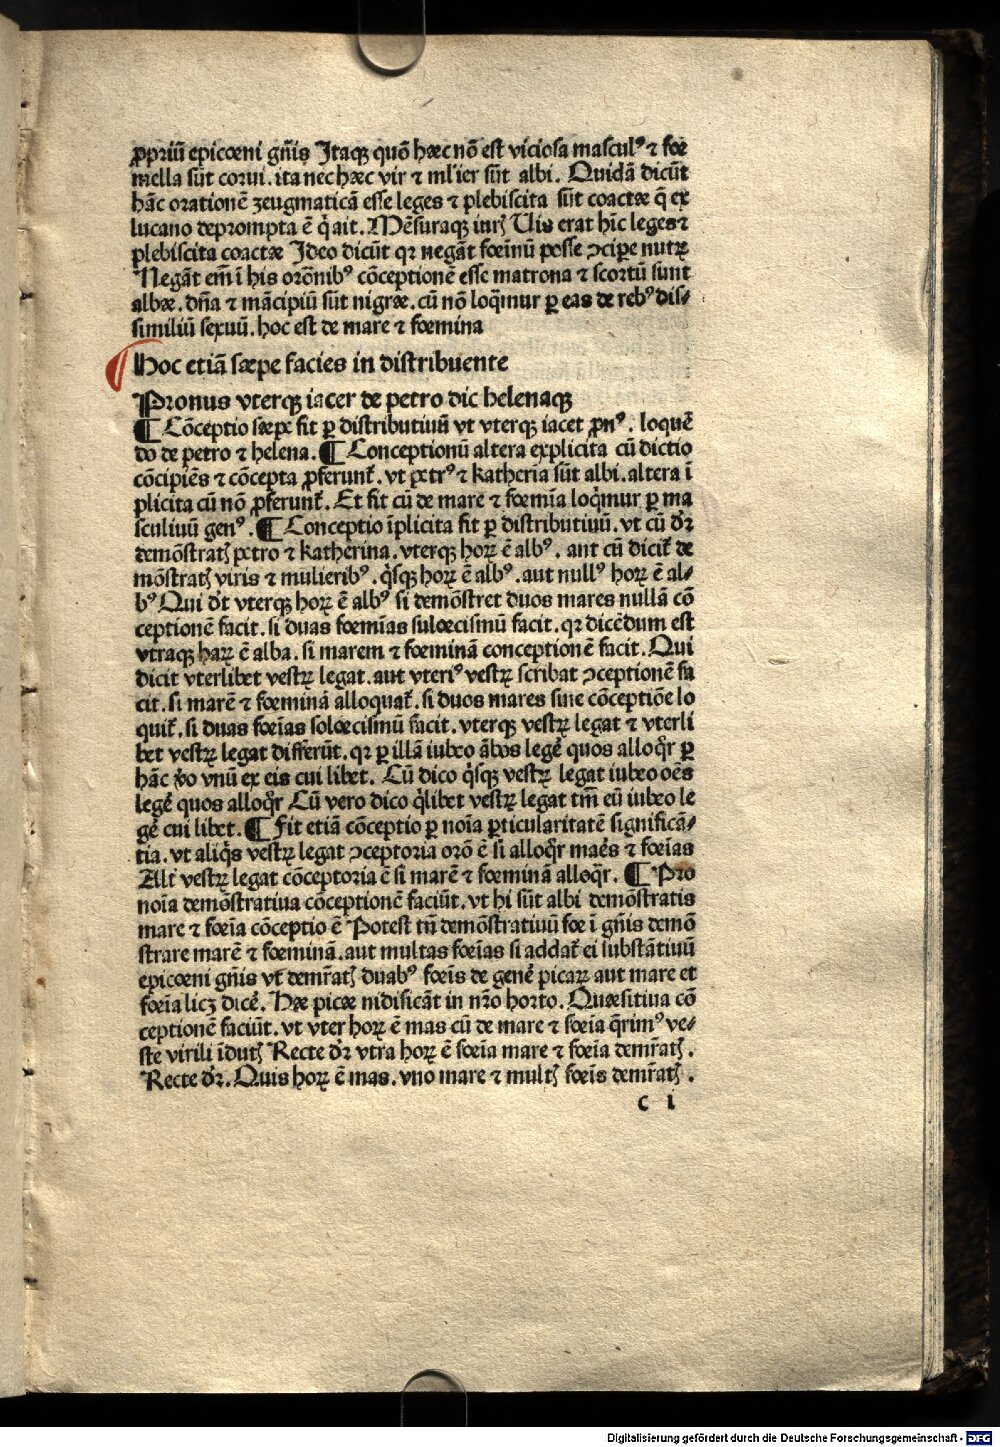 ꝓpriū epicœni gñis Itaqꝫ quō hæc nō est viciosa masculꝰ ⁊ fœ
mella sūt corui. ita nec hæc vir ⁊ ml'ier sūt albi. Quidā dicūt
hāc orationē zeugmaticā esse leges ⁊ plebiscita sūt coactæ q̄ ex
lucano deprompta ē q̇ ait. Mēsuraqꝫ iurꝭ Uis erat hīc leges ⁊
plebiscita coactæ Ideo dicūt qꝛ negāt fœīnū posse ↄciꝑe nutꝝ
Negāt em̄ ī his orōnibꝰ cōceptionē esse matrona ⁊ scortū sunt
albæ. dña ⁊ mācipiū sūt nigræ. cū nō loq̄mur ꝑ eas de rebꝰ dis⸗
similiū sexuū. hoc est de mare ⁊ fœmina
Hoc etiā sæpe facies in distribuente
Pronus vterqꝫ iacet de petro dic helenaqꝫ
¶ Cōceptio sæpe fit ꝑ distributiuū vt vterqꝫ iacet ꝓnꝰ. loquē
do de petro ⁊ helena. ¶ Conceptionū altera explicita cū dictio
cōcipiēs ⁊ cōcepta ꝓferunt᷑. vt petrꝰ ⁊ katherīa sūt albi. altera ī
plicita cū nō ꝓferunt᷑. Et fit cū de mare ⁊ fœmīa loq̄mur ꝑ ma
sculiuū genꝰ. ¶ Conceptio īplicita fit ꝑ distributiuū. vt cū dꝛ̄
demōstratꝭ petro ⁊ katherina. vterqꝫ hoꝝ ē albꝰ. aut cū dicit᷑ de
mōstratꝭ viris ⁊ mulieribꝰ. q̇sqꝫ hoꝝ ē albꝰ. aut nullꝰ hoꝝ ē al⸗
bꝰ Qui dr̄t vterqꝫ hoꝝ ē albꝰ si demōstret duos mares nullā cō
ceptionē facit. si duas fœmīas solœcismū facit. qꝛ dicēdum est
vtraqꝫ haꝝ ē alba. si marem ⁊ fœminā conceptionē facit. Qui
dicit vterlibet vestꝝ legat. aut vteriꝰ vestꝝ scribat ↄceptionē fa
cit. si marē ⁊ fœminā alloquat᷑. si duos mares sine cōceptiōe lo
quit᷑. si duas fœīas solœcismū facit. vterqꝫ vestꝝ legat ⁊ vterli
bet vestꝝ legat differūt. qꝛ ꝑ illā iubeo ābos legē quos alloq̄r ꝑ
hāc v̄o vnū ex eis cui libet. Cū dico q̇sqꝫ vestꝝ legat iubeo oēs
legē quos alloq̄r Cū vero dico q̇libet vestꝝ legat tm̄ eū iubeo le
gē cui libet. ¶ Fit etiā cōceptio ꝑ noīa ꝑticularitatē significā⸗
tia. vt aliq̇s vestꝝ legat ↄceptoria orō ē si alloq̄r maēs ⁊ fœīas
Alt̄ vestꝝ legat cōceptoria ē si marē ⁊ fœminā alloq̄r. ¶ Pro
noīa demōstratiua cōceptionē faciūt. vt hi sūt albi demōstratis
mare ⁊ fœīa cōceptio ē Potest tn̄ demōstratiuū fœ ī gñis demō
strare marē ⁊ fœminā. aut multas fœīas si addat᷑ ei substātiuū
epicœni gñis vt demr̄atꝭ duabꝰ fœīs de genē picaꝝ aut mare et
fœīa licꝫ dicē. Hæ picæ nidificāt in nr̄o horto. Quæsitiua cō
ceptionē faciūt. vt vter hoꝝ ē mas cū de mare ⁊ fœīa q̄rimꝰ ve⸗
ste virili īdutꝭ Recte dꝛ̄ vtra hoꝝ ē fœīa mare ⁊ fœīa demr̄atꝭ.
Recte dꝛ̄. Quis hoꝝ ē mas. vno mare ⁊ multꝭ fœīs demr̄atꝭ.
c i
Digitalisierung gefördert durch die Deutsche Forschungsgemeinschaft - DFG